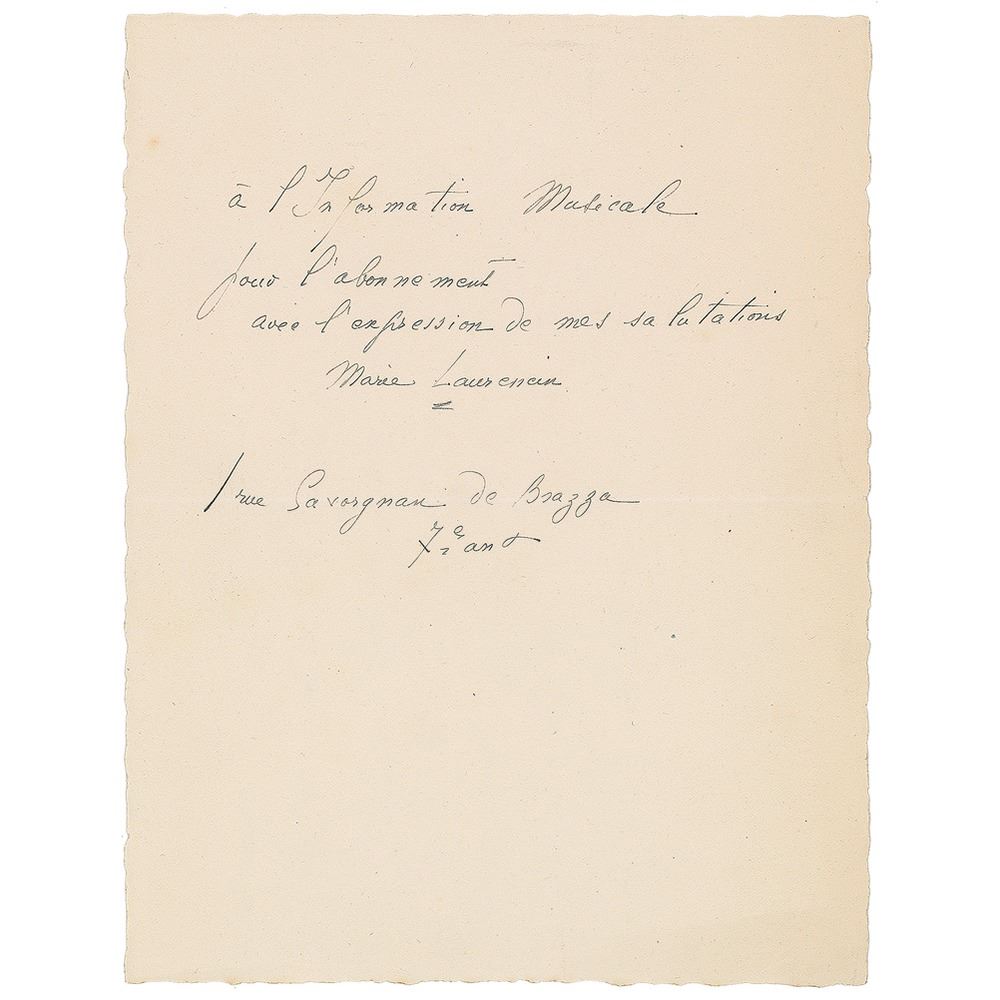 à l'Information Musicale
pour l'abonnement
avec l'expression de mes salutations
Marie Laurencin
1 rue Savorgnan de Brazza
7e arrt